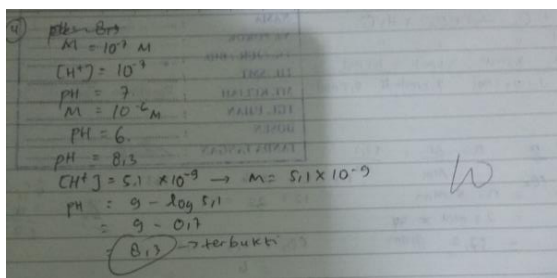 4
M = 10⁻⁷ M
[H⁺] = 10⁻⁷
pH = 7
M = 10⁻⁶ M
pH = 6.
pH = 8,3
[H⁺] = 5,1 × 10⁻⁹ → M = 5,1 × 10⁻⁹
pH = 9 - log 5,1
= 9 - 0,7
= 8,3 → terbukti